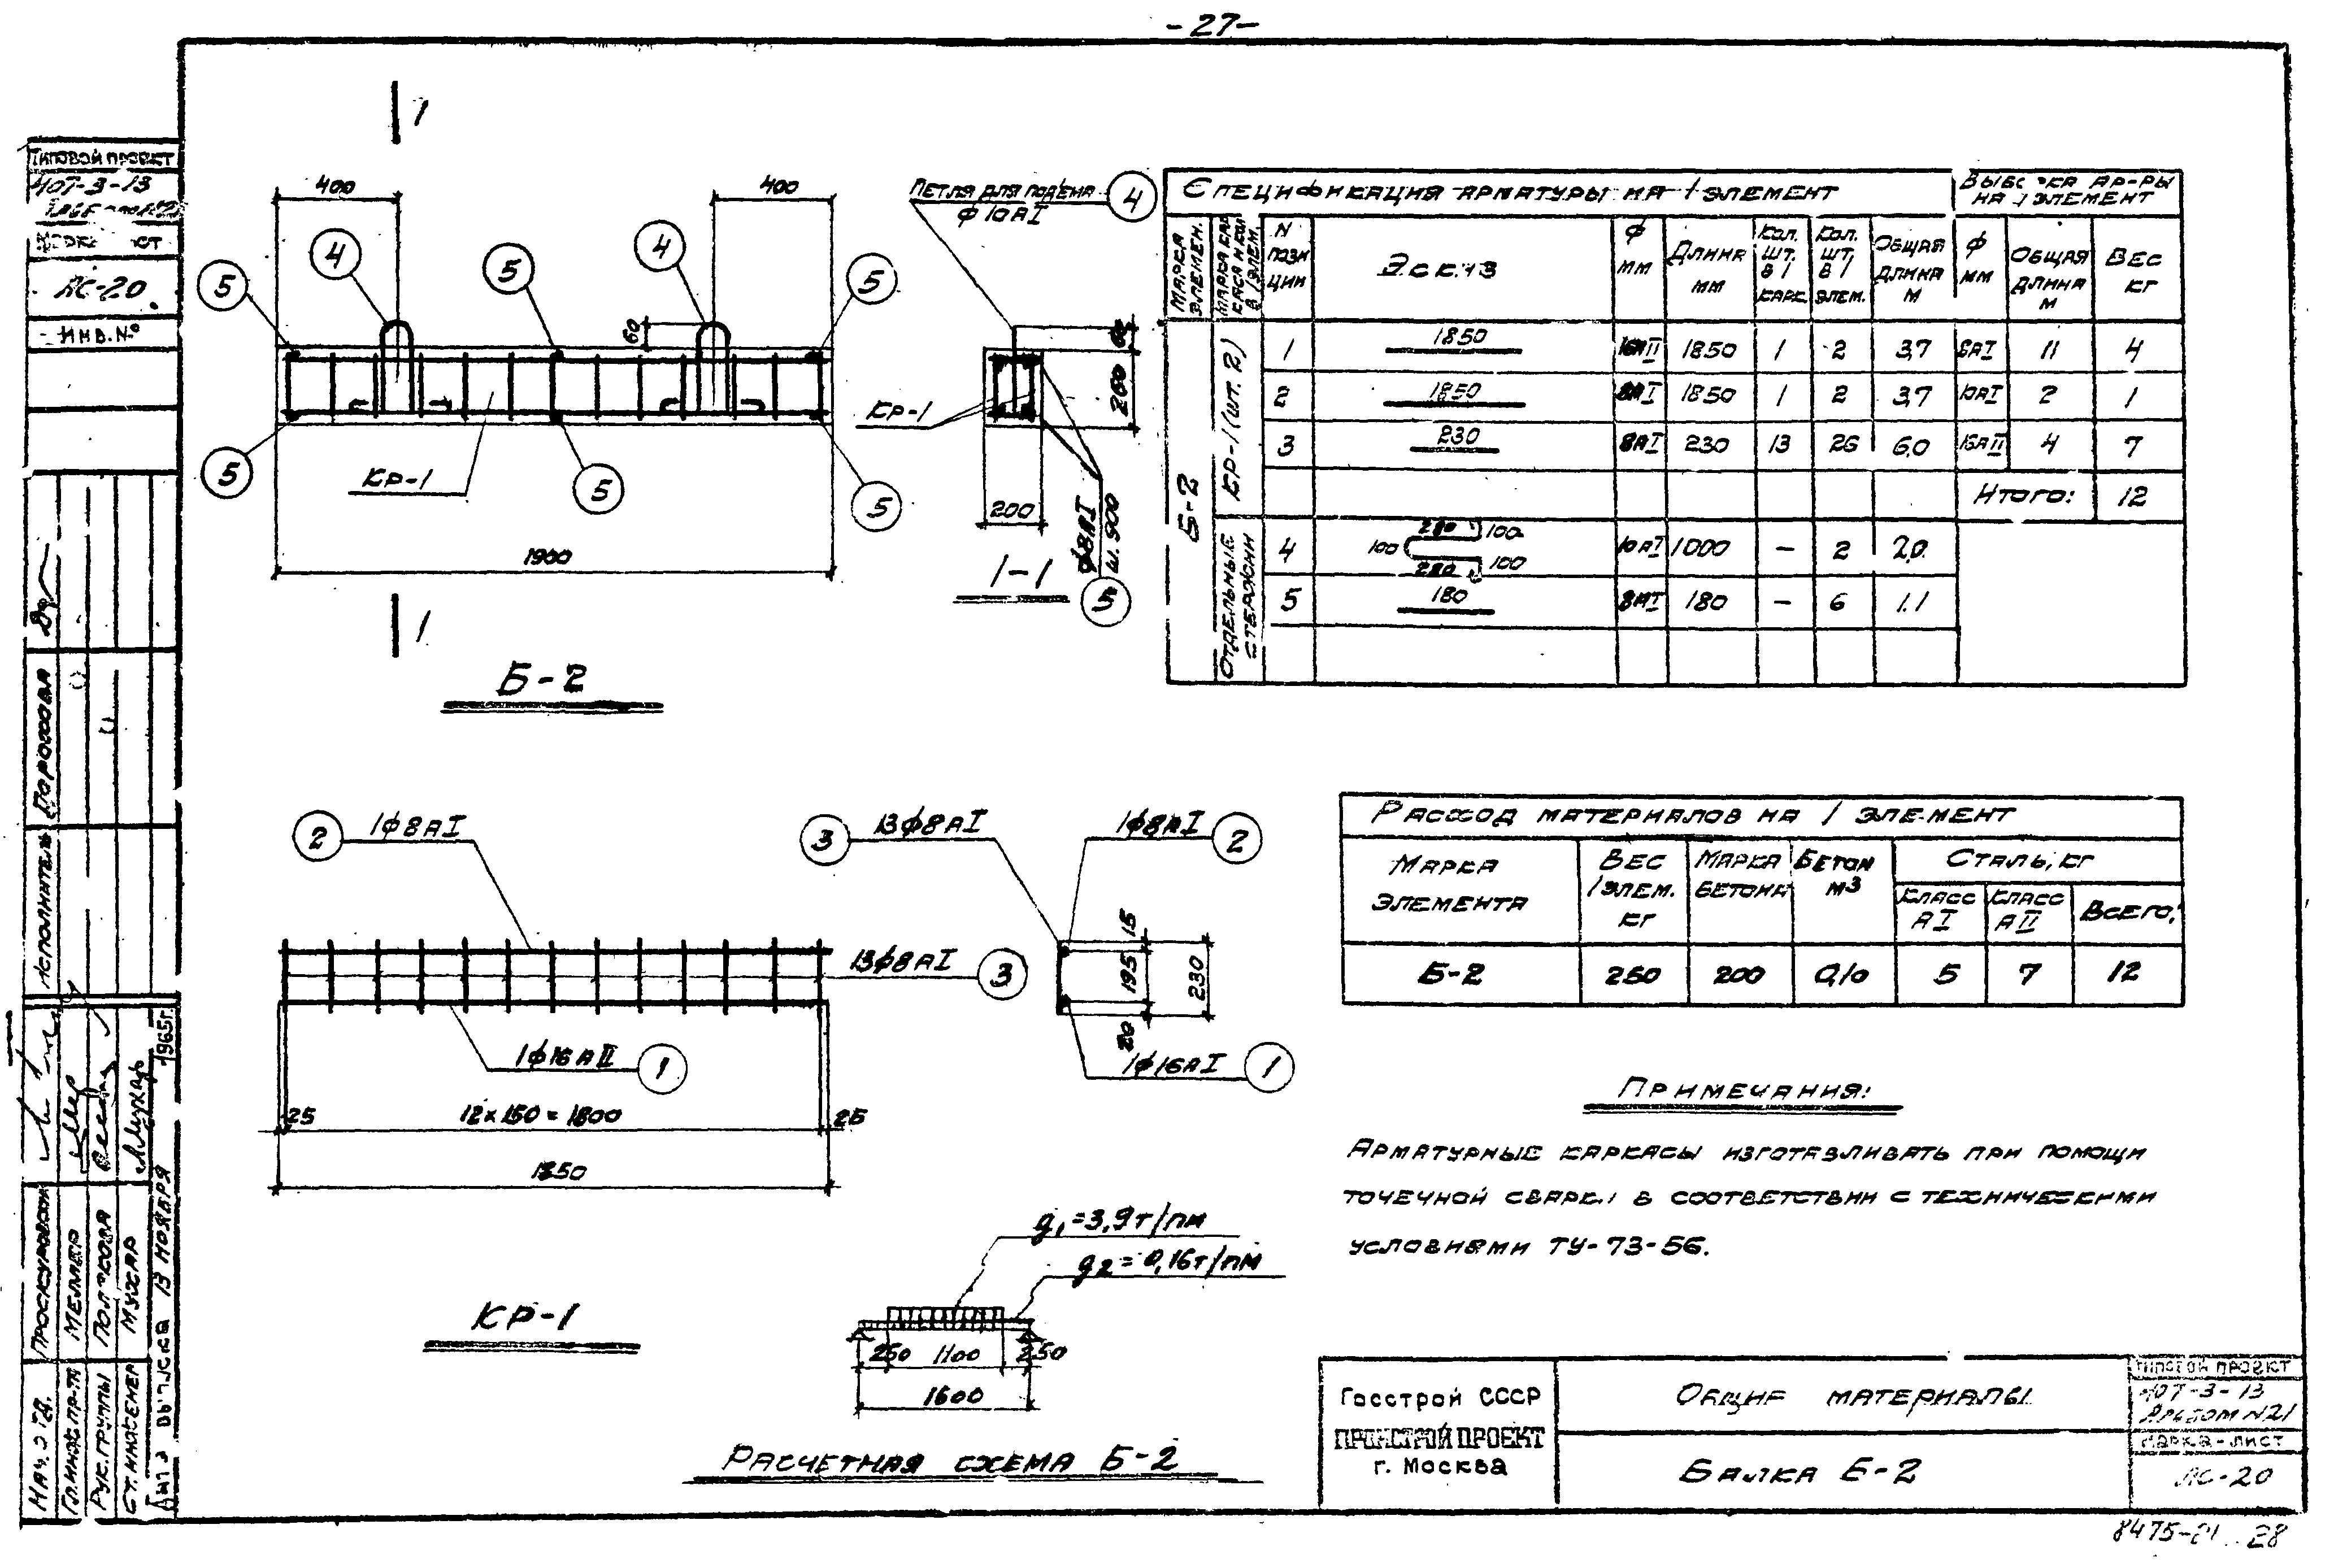 - 27 -
Типовой проект
407-3-13
АС-20
Инв.№
1
400
400
Петля для подъема
ф10АI
4
4
5
4
5
5
60
60
260
КР-1
КР-1
5
5
5
200
ф8АI
ш. 900
5
1900
1-1
1
Б-2
Спецификация арматуры на 1 элемент
Выборка ар-ры
на 1 элемент
Марка элемен.
N позиции
Эскиз
ф мм
Длина мм
Кол. шт. в 1 карк.
Кол. шт. в 1 элем.
Общая длина м
ф мм
Общая длина м
Вес кг
Б-2
КР-1 (шт. 2)
1 1850 16АII 1850 1 2 3,7 8АI 11 4
2 1850 8АI 1850 1 2 3,7 10АI 2 1
3 230 8АI 230 13 26 6,0 16АII 4 7
Итого: 12
Отдельные стержни
4 280 100 100 280 100 10АI 1000 - 2 2,0
5 180 8АI 180 - 6 1.1
2 1ф8АI
3 13ф8АI
1ф8АI 2
13ф8АI 3
15
195
230
20
1ф16АII 1
1ф16АI 1
25 12х150=1800 25
1850
КР-1
Расход материалов на 1 элемент
Марка элемента
Вес 1 элем. кг
Марка бетона
Бетон м3
Сталь, кг
Класс АI
Класс АII
Всего:
Б-2 260 200 0,10 5 7 12
Примечания:
Арматурные каркасы изготавливать при помощи
точечной сварки в соответствии с техническими
условиями ТУ-73-56.
g1=3,9т/пм
g2=0,16т/пм
250 1100 250
1600
Расчетная схема Б-2
Госстрой СССР
ПРОМСТРОЙПРОЕКТ
г. Москва
Общие материалы
Балка Б-2
Типовой проект
407-3-13
Альбом N21
Марка-лист
АС-20
8475-21 28
Исполнитель
Дорохова
Нач. отд.
Проскуровский
Гл.инж.пр-та
Меллер
Рук.группы
Ст.инженер
Мухар
13 ноября 1965г.